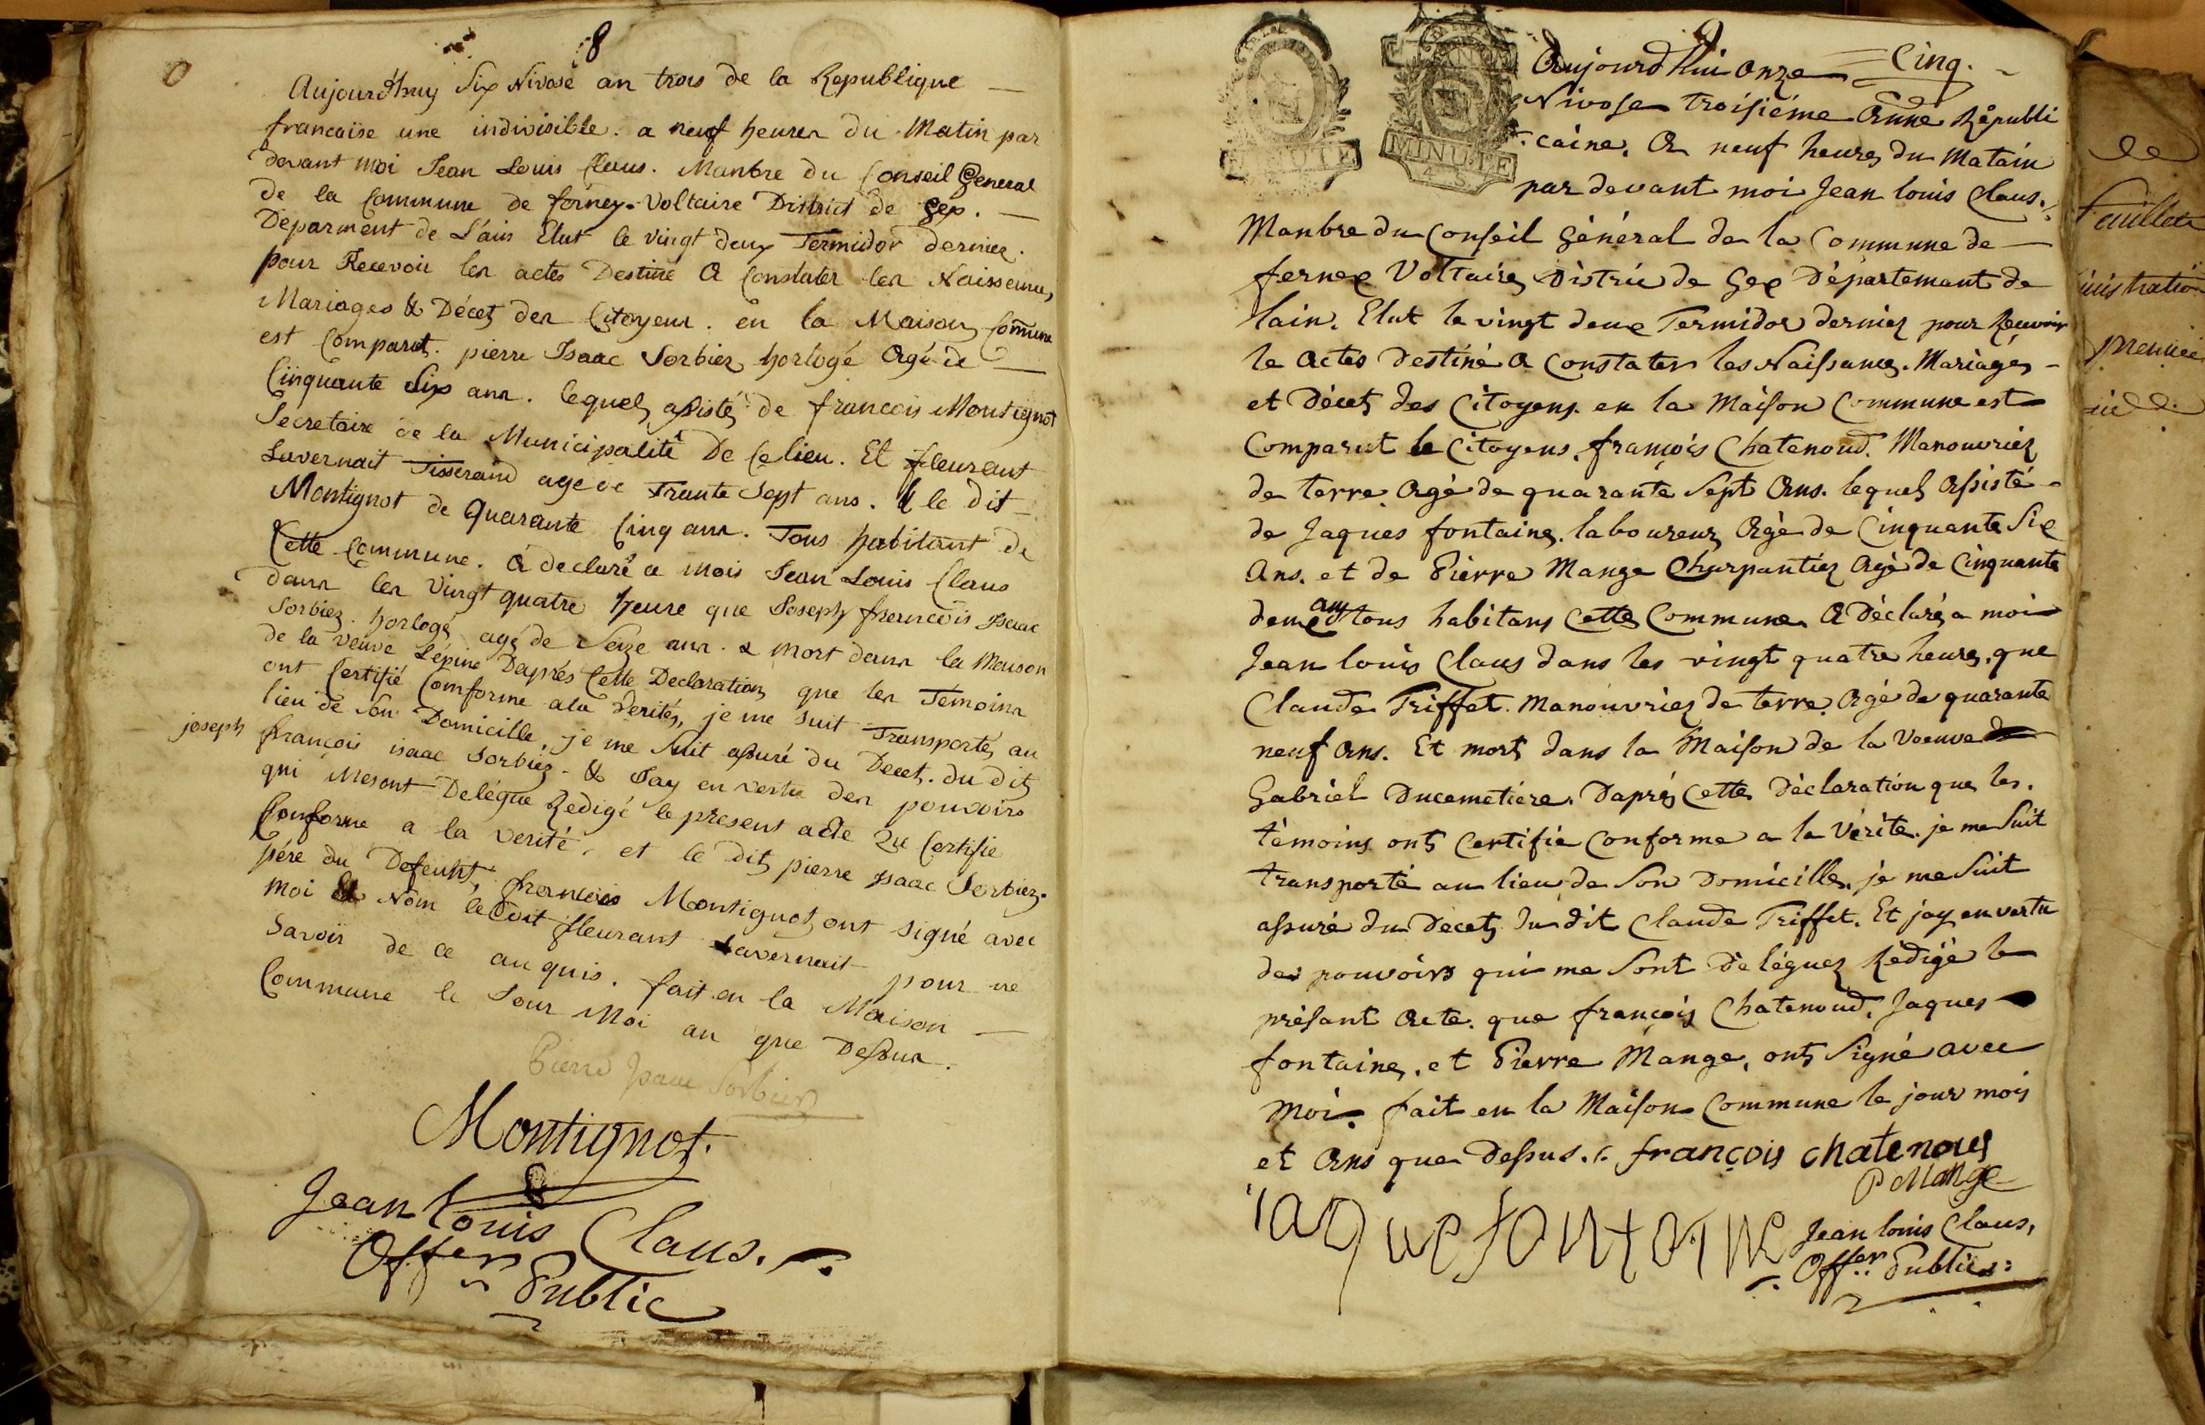 8
Aujourd'huy Six Nivose an trois de la Republique
francaise une indivisible. a neuf heures du Matin par
devant moi Jean Louis Claus. Manbre du Conseil General
de la Commune de forney-Voltaire District de Gex.
Deparment de L'ain Elut le vingt deux Termidor dernier.
pour Recevoir les actes Destiné a Constater les Naissences
Mariages & Décet des Citoyens. en la Maison Commune
est Comparut. pierre Isaac Sorbiez horlogé Agé de
Cinquante Six ans. lequel assisté de francois Montignot
Secretaire de la Municipalité De Ce lieu. Et fleurant
Lavernait Tisserand agé de Trante Sept ans. & le dit
Montignot de Quarante Cinq ans. Tous habitant de
Cette Commune. à declaré a mois Jean Louis Claus
dans les Vingt quatre heure que Joseph francois Isaac
Sorbiez. horlogé agé de Seize ans. & mort dans la Maison
de la veuve Lépine Daprés Cette Declaration que les Témoins
ont Certifié Comforme a la Verités, je me suit Transportés au
lieu de Son Domicille, je me Suit assuré du Decet. du dit
joseph françois isaac Sorbiez. & Jay en vertu des pouvoirs
qui Mesont Delégué Redigé le present acte Que Certifie
Comforme a la verité. et le dit pierre Isaac Sorbiez.
pére du Defeunt, francois Montignot ont signé avec
moi & Nom le Dit fleurant Lavernait pour ne
Savoir de ce auquis. fait en la Maison
Commune le Jour Moi an que Dessus.
Pierre Isaac Sorbier
Montignot.
Jean Louis Claus.
Offer Public
9
Cinq.
Aujourdhui onze
Nivose troisiéme Anné Républi
caine. A neuf heures du Matain
par devant moi Jean louis Claus.
MINUTE
MINUTE
Manbre du Conseil Général de la Commune de
fernex Voltaires Distric de Gex Département de
lain. Elut le vingt deux Termidor dernier pour Recevoir
le Actes Destiné a Constater les Naissances. Mariages
et Décet des Citoyens. en la Maison Commune est
Comparut le Citoyens. françois Chatenoud. Manouvriez
de terre Agé de quarante Sept Ans. lequel Assisté
de Jaques fontaine. laboureur Agé de Cinquante Six
Ans. et de Pierre Mange Charpantiez Agé de Cinquante
deux ans tous habitans Cette Commune A Déclaré a moi
Jean louis Claus dans les vingt quatre heures. que
Claude Triffet. Manouvriez de terre. Agé de quarante
neuf Ans. Et mort dans la Maison de la Voeuve
Gabriel Ducemetiere. Daprés Cette Déclaration que les.
témoins ont Certifié Conforme a la Vérité. je me Suit
transporté au lieu de Son Domicille. je me Suit
assuré du Décet du dit Claude Triffet. Et jay en vertu
des pouvoirs qui me Sont Déléguez Rédigé le
présant Acte. que françois Chatenoud. Jaques
fontaine. et Pierre Mange, ont Signé avec
moi. fait en la Maison Commune le jour mois
et Ans que Dessus. françois chatenoud
P Mange
iaquefontaine
Jean louis Claus,
Offer Public
feuillets